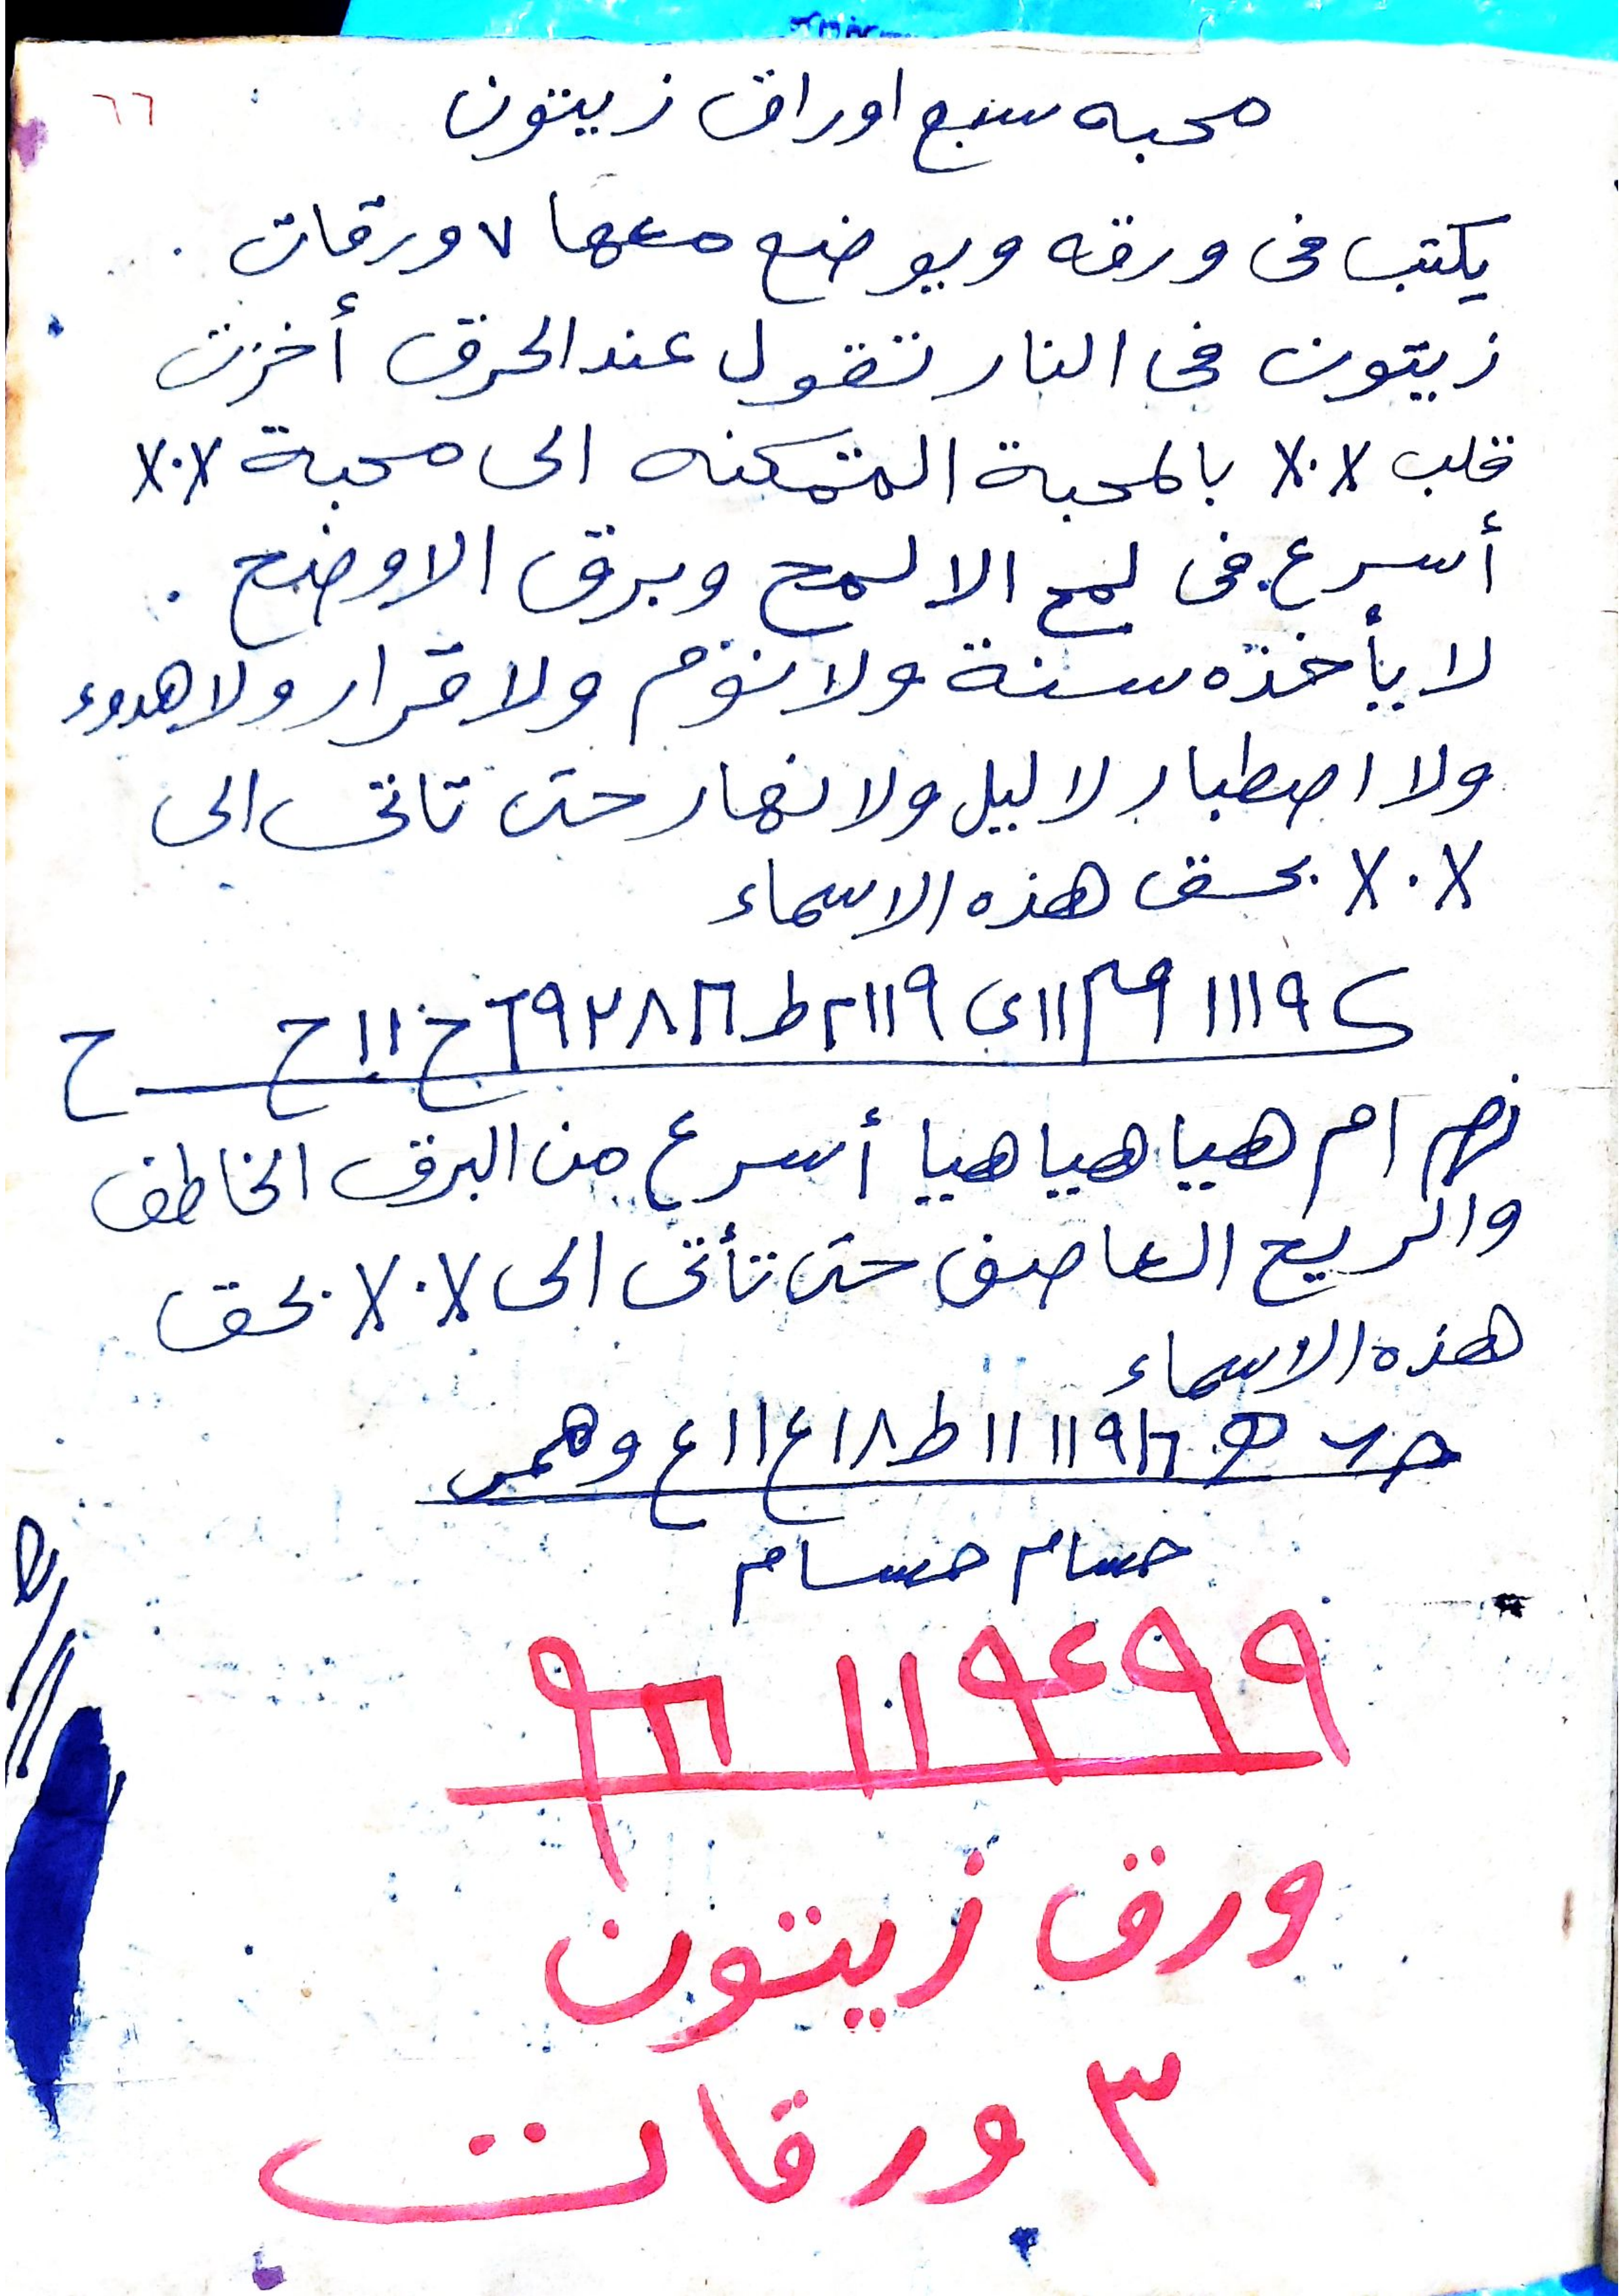 ٦٦
محبه سبع اوراق زيتون
يكتب فى ورقه ويوضع معها ٧ ورقات .
زيتون فى النار تقول عند الحرق أخزت
قلب X٠X بالمحبة المتمكنه الى محبة X٠X
أسرع فى لمح الالمح وبرق الاوضح .
لا يأخذه سنة ولا نوم ولا قرار ولا هدوء
ولا اصطبار لا ليل ولا نهار حتى تاتى الى
X٠X بحق هذه الاسماء
ام هيا هيا هيا أسرع من البرق الخاطف
والريح العاصف حتى تأتى الى X٠X بحق
هذه الاسماء
حسام حسام
٩٩٤٩١١
ورق زيتون
٣ ورقات